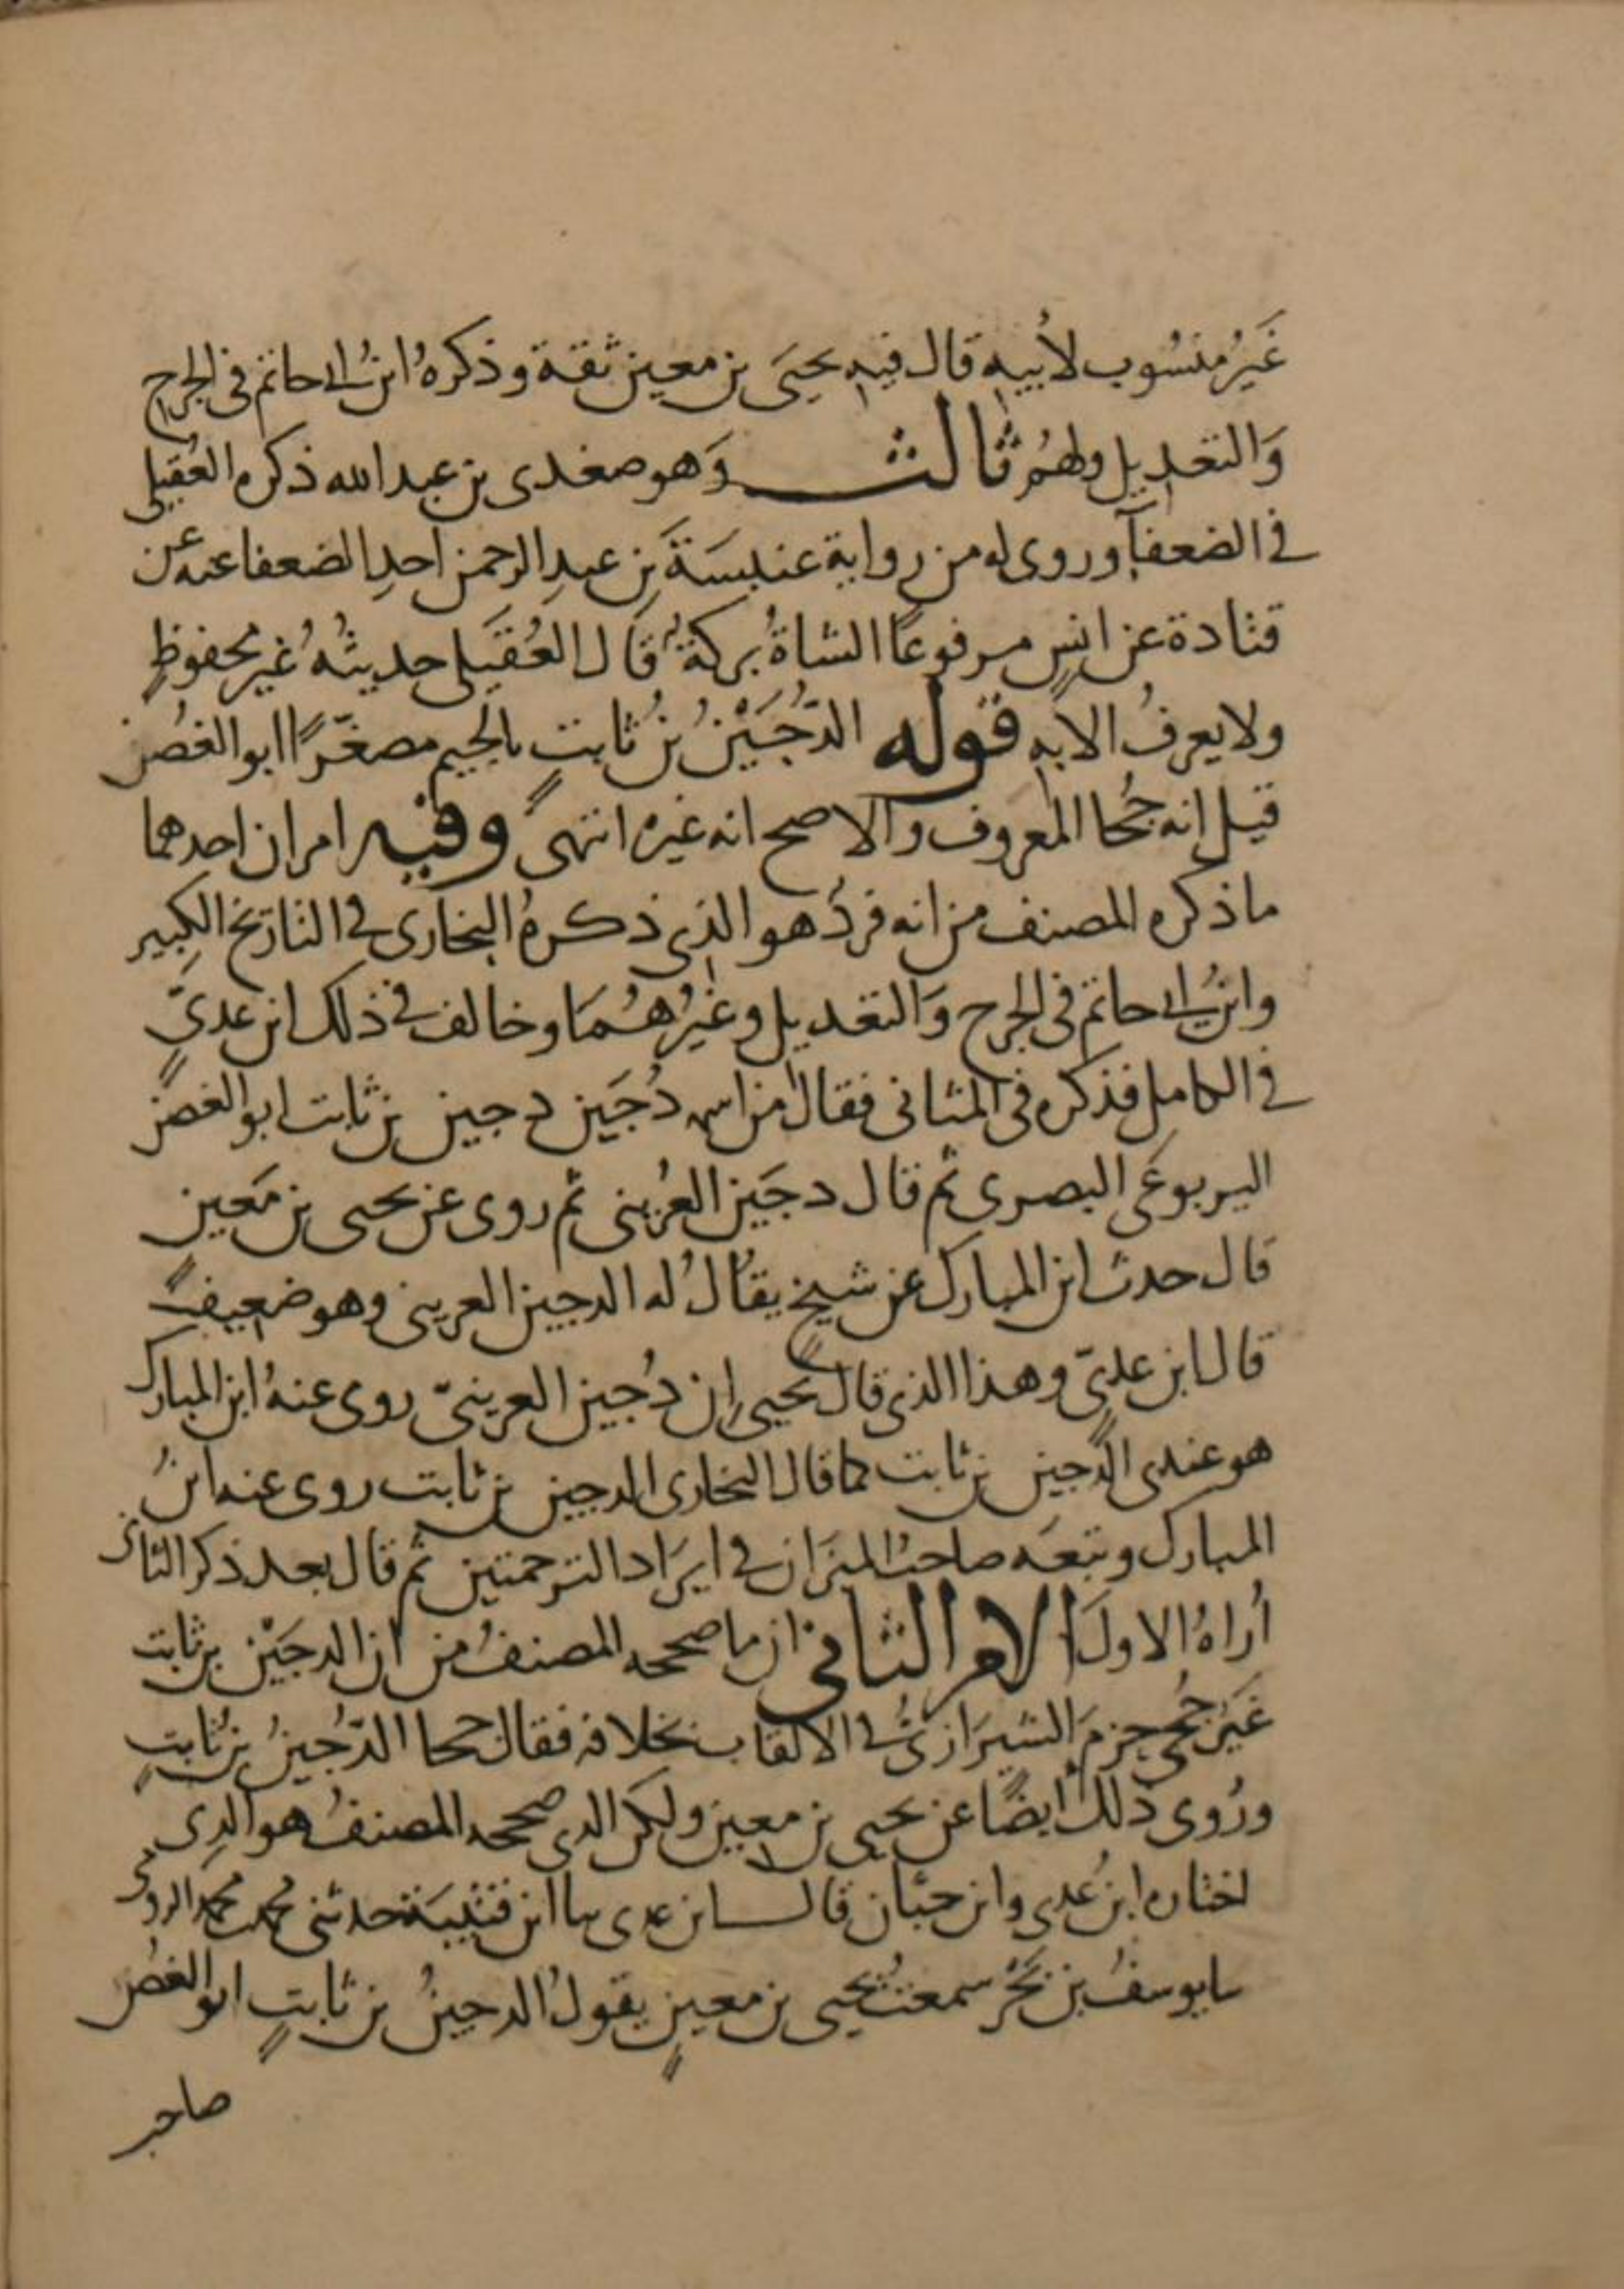 غَيرُ منسُوب لأبيه قال فيه يحيَى بن معين ثقة وذكرهُ ابنُ ابي حاتم في الجرح
وَالتعديل ولهُم ثالث وَهو صغدى بن عبد الله ذكره العُقيلي
في الضعفآ وروى له من رواية عنبسَةَ بنِ عبدِ الرحمن احدِ الضعفا عنه عن
قتادة عن انسٍ مرفوعًا الشاةُ بركة قَال العُقيَلى حديثُهُ غير محفوظٍ
ولا يعرفُ الا به قوله الدُّجَيْنُ بنُ ثابتٍ بالجيم مصغّرًا ابو الغُصن
قيل انه جُحا المعروف والاصح انه غيره انتهى وفيه امران احدهما
ما ذكره المصنف من انه فردٌ هو الذي ذكرهُ البخارى في التاريخ الكبير
وابنُ ابي حاتم في الجرح وَالتعديل وغيرُهُمَا وخالف في ذلك ابن عدىٍّ
في الكامل فذكره في المثانى فقال من اسمه دُجَين دجين بن ثابت ابو الغصن
اليربوعَى البصرى ثم قال دجَين العُرينى ثم روى عن يحيى بن مَعين
قال حدث ابن المبارك عن شيخٍ يقالُ له الدجين العرينى وهو ضعيفٌ
قال ابن عدىّ وهذا الذى قال يحيى إن دُجين العرينىّ روى عنهُ ابن المبارك
هو عندى الدُّجين بن ثابت كما قال البخارى الدجين بن ثابت روى عنه ابنُ
المبارك وتبعَه صاحبُ الميزان في ايرَاد الترجمتين ثم قال بعد ذكر الثانى
أراهُ الاولَ الامر الثاني ان ما صححه المصنفُ من ان الدجَيْن بن ثابت
غيَر جُحى جزمَ الشيرَازىُّ في الالقاب بخلافه فقال جحا الدّجينُ بن ثابتٍ
ورُوى ذلك أيضًا عن يحيى بن معين ولكن الذى صححه المصنفُ هو الذِى
اختاره ابنُ عدى وابن حبّان قال ابن عدى ثنا ابن قتيبَة حدثنى محمد بن محمد الرومى
ثنا يوسفُ بن بَحْر سمعتُ يحيى بن معينٍ يقولُ الدجينُ بن ثابتٍ ابو الغصن
صاحب